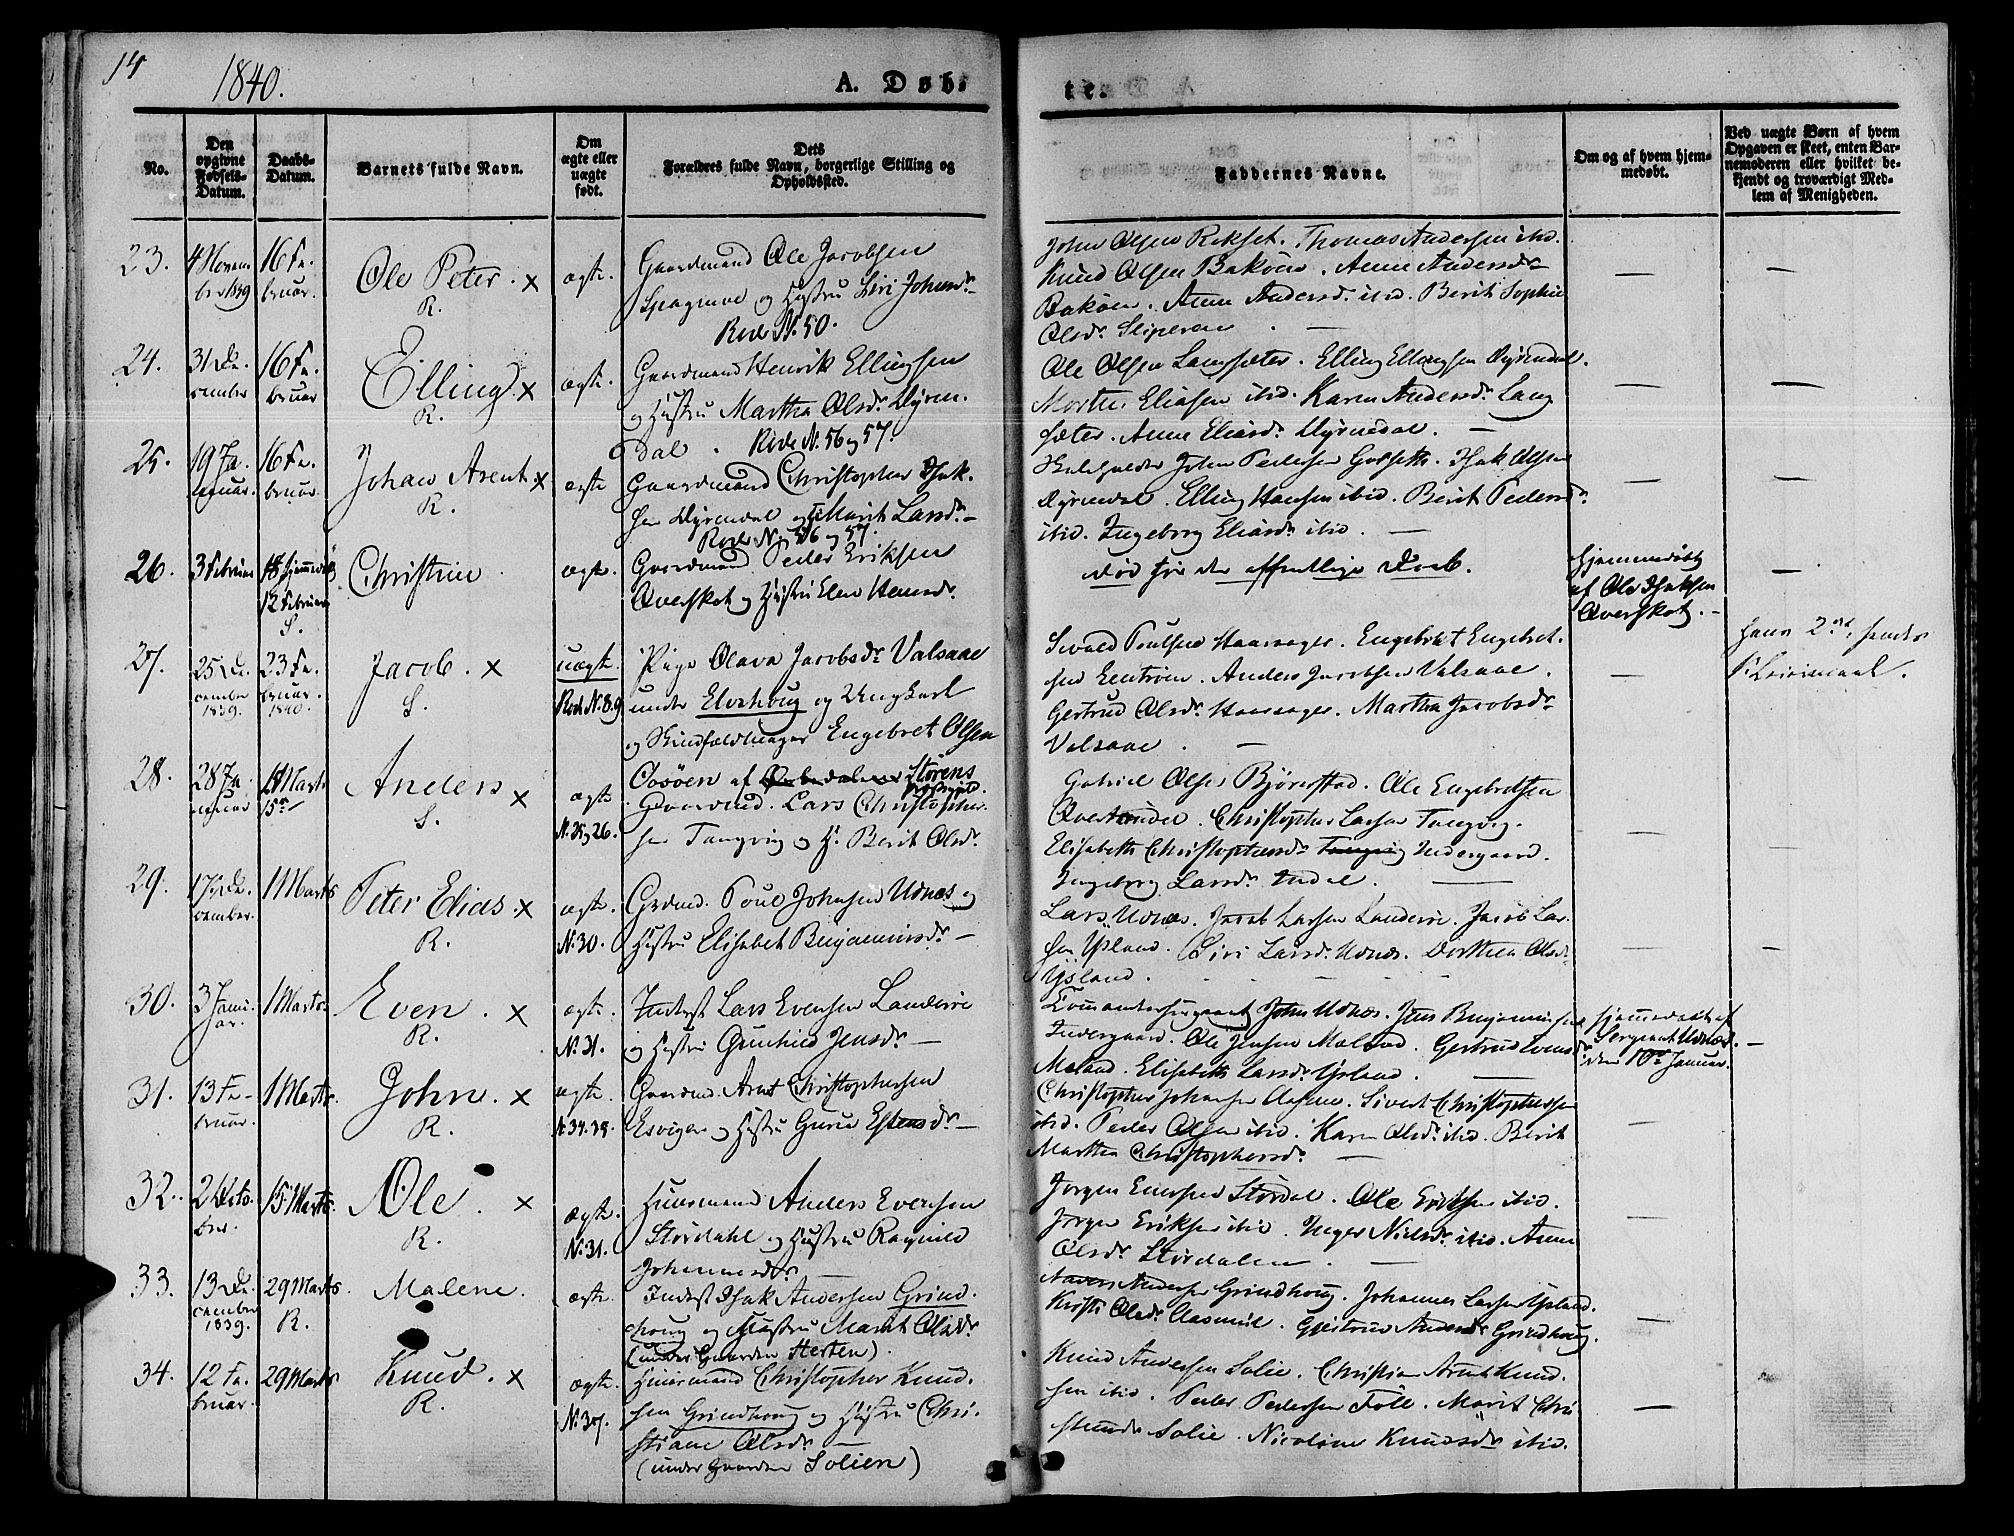 14
1840.
A. Døb-
te.
No.
Den opgivne Fødsels-Datum.
Daabs-Datum.
Barnets fulde Navn.
Om ægte eller uægte født.
Dets Forældres fulde Navn, borgerlige Stilling og Opholdssted.
Faddernes Navne.
Om og af hvem hjem-medøbt.
Ved uægte Børn af hvem Opgaven er skeet, enten Bar-nemoderen eller hvilket be-kjendt og troværdigt Med-lem af Menigheden.
23.
4 Novem
ber 1839
16 Fe.
bruar.
Ole Peter. x
R.
ægte.
Gaardmand Ole Jacobsen
og Hustru Siri Johnsdr
Rode N. 50.
John Olsen Rekset. Thomas Andersen ibid.
Knud Olsen Bakøen. Anne Andersdr
Bakøen. Anne Andersd. ibid. Berit Sophie
Olsdr Sliperen
24.
31 De.
cember
16 Fe.
bruar
Elling. x
R.
ægte.
Gaardmand Henrik Ellingsen
og Hustru Martha Olsdr Dyren.
dal. Rode N. 56 og 57.
Ole Olsen Langsæter. Elling Ellingsen Dyrendal.
Morten Eliasen ibid. Karen Andersdr Lang
sæter. Anne Eliasdr Dyrendal.
25.
19 Ja.
nuar.
16 Fe.
bruar.
Johan Arent x
R.
ægte
Gaardmand Christopher Isak.
sen Dyrendal og Marit Larsdr
Rode N. 56 og 57.
John Pedersen Isak Olsen
Dyrendal. Elling Hansen ibid. Berit Pedersdr
ibid. Ingeborg Eliasdr ibid.
26.
3 Februar
12 Februar
S.
Christine
ægte.
Gaardmand Peder Eriksen
Overskot og Hustru Elen Hansdr
død før den offentlige Daab.
hjemmedøbt
af Ole Isaksen
Overskot.
27.
25 De.
cember
1839.
23 Fe.
bruar.
1840.
Jacob. x
S.
uægte.
Rode N. 8.9
Pige Olava Jacobsdr Valsaae
under Elvehoug og Ungkarl
og Engebret Olsen
Sivald Poulsen Haarsager. Engebret Engebret.
sen Anders Jacobsen Valsaae.
Gertrud Olsdr Haarsager. Martha Jacobsdr
Valsaae.
hans 2det, hendes
1ste Leiermaal.
28.
28 Ja.
nuar
1 Marts
Anders x
S.
ægte
N. 25 og 26.
Oosøen af Størens
Gaardmd. Lars Christopher.
sen Tangvig og H. Berit Olsdr
Gabriel Olsen Bjørnstad. Ole Engebretsen
Christopher Larsen Tangvig.
Elisabeth Christophersdr Indergaard.
Ingeborg Larsdr Indal.
29.
17 De.
cember.
1 Marts
Peter Elias. x
R.
ægte.
N. 30.
Grdmd. Poul Johnsen Udnæs og
Hustru Elisabet Benjaminsdr
Lars Udnæs. Jacob Larsen Landerøe. Jacob Lar.
sen Ysland. Siri Larsd. Udnæs. Dorthea Olsdr
Ysland.
30.
3 Janu.
ar.
1 Marts.
Even. x
R.
ægte.
N. 31.
Inderst Lars Evensen Landerøe
og Hustru Gunhild Jensdr
John Udnæs. Jens Benjaminsen
Indergaard. Ole Jensen Meland. Gertrud
Meland. Elisabeth Larsdr Ysland.
hjemmedøbt af
Sergeant Udnæs.
den 10de Januar.
31.
13 Fe-
bruar.
1 Marts.
John. x
R.
ægte.
Gaardmd. Arnt Christophersen
Esvigen og Hustru Guru Estensdr
Christopher Johansen Aasene. Sivert Christophersen
ibid. Peder Olsen ibid. Karen Olsdr ibid. Berit
Martha Christophersdr
32.
2 Octo.
ber.
15 Marts.
Ole. x
R.
ægte.
N. 31.
Huusmand Anders Evensen
Størdahl og Hustru Ragnild
Johannesdr
Jørgen Størdal. Ole Eriksen ibid.
Jørgen Eriksen ibid. Inger Nielsdr ibid. Anne
Olsdr Størdalen
33.
13 De.
cember
1839.
29 Marts
R.
Malene.
ægte.
Inderst Isak Andersen Grind.
houg og Hustru Marit Olsdr
(under Gaarden Slerten).
Andersen Grindhoug. Johannes Larsen Ysland.
Kirsti Olsdr Gjertrud Andersd Grindhoug.
34.
12 Fe.
bruar.
29 Marts
Knud. x
R.
ægte.
N. 37.
Huusmand Christopher Knud.
sen Grindhoug og Hustru Chri.
stiane Olsdr
(under Gaarden Solien)
Knud Andersen Solie. Christian Arnt Knud.
sen ibid. Peder Pedersen Føll. Marit Chri
Solie. Nicoline Knudsdr ibid.